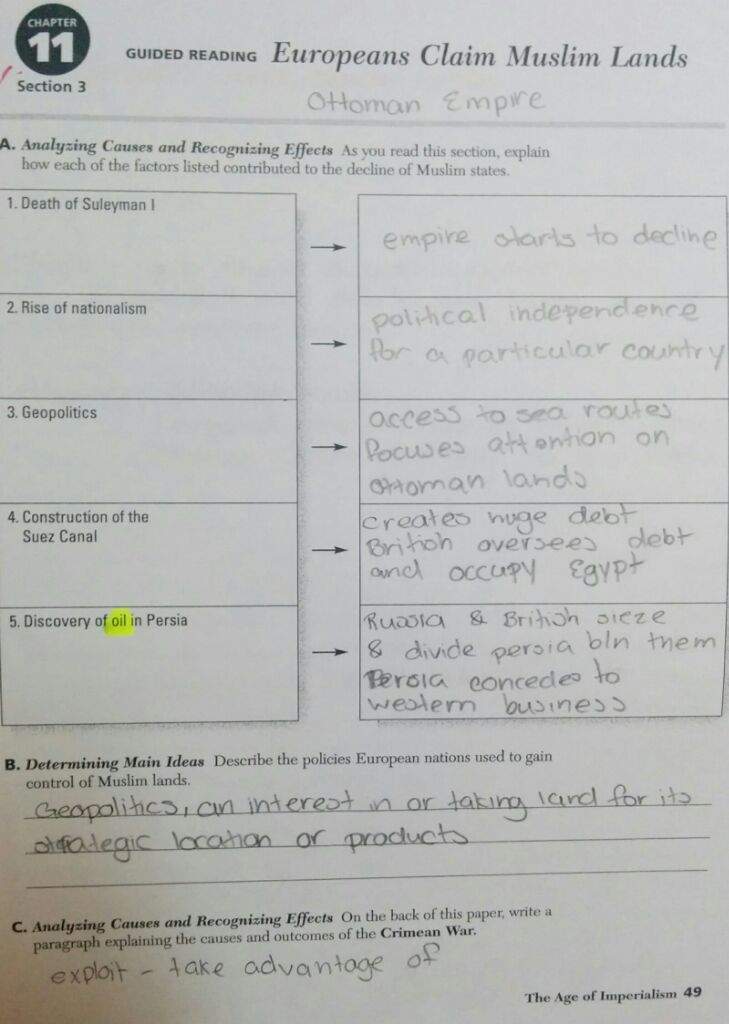 CHAPTER
11
Section 3
GUIDED READING Europeans Claim Muslim Lands
Ottoman Empire
A. Analyzing Causes and Recognizing Effects As you read this section, explain
how each of the factors listed contributed to the decline of Muslim states.
1. Death of Suleyman I
empire starts to decline
2. Rise of nationalism
political independence
for a particular country
3. Geopolitics
access to sea routes
focuses attention on
ottoman lands
4. Construction of the
Suez Canal
creates huge debt
British oversees debt
and occupy Egypt
5. Discovery of oil in Persia
Russia & British sieze
& divide persia b/n them
Persia concedes to
western business
B. Determining Main Ideas Describe the policies European nations used to gain
control of Muslim lands.
Geopolitics, an interest in or taking land for its
strategic location or products
C. Analyzing Causes and Recognizing Effects On the back of this paper, write a
paragraph explaining the causes and outcomes of the Crimean War.
exploit - take advantage of
The Age of Imperialism 49